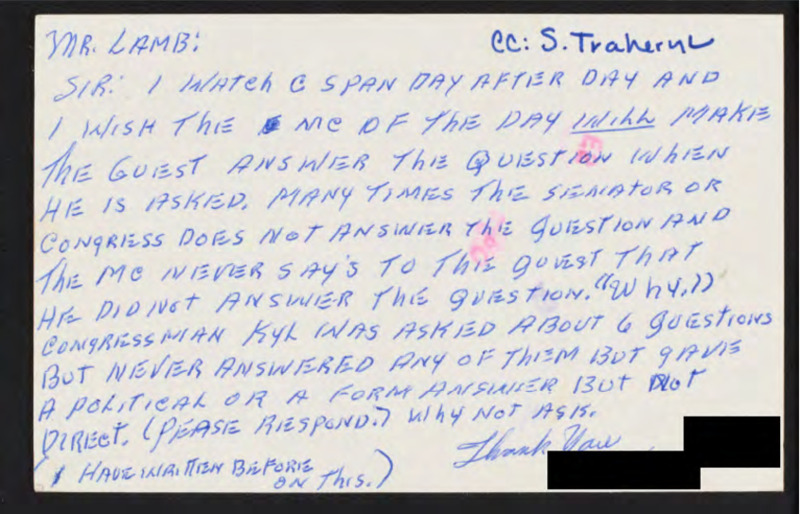 MR. LAMB:
CC: S. Traherne
SIR: I WATCH C SPAN DAY AFTER DAY AND
I WISH THE MC OF THE DAY WILL MAKE
THE GUEST ANSWER THE QUESTION WHEN
HE IS ASKED. MANY TIMES THE SENATOR OR
CONGRESS DOES NOT ANSWER THE QUESTION AND
THE MC NEVER SAY'S TO THE GUEST THAT
HE DID NOT ANSWER THE QUESTION. "WHY."
CONGRESSMAN KYL WAS ASKED ABOUT 6 QUESTIONS
BUT NEVER ANSWERED ANY OF THEM BUT GAVE
A POLITICAL OR A FORM ANSWER BUT NOT
DIRECT. (PEASE RESPOND.) WHY NOT ASK.
Thank You
(I HAVE WRITTEN BEFORE
ON THIS.)